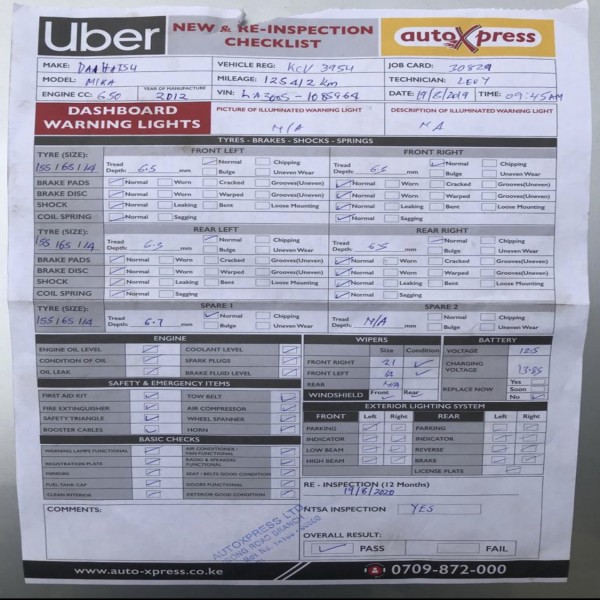 Uber
NEW & RE-INSPECTION
CHECKLIST
autoXpress
MAKE: DAAHATSU VEHICLE REG: KCV 395Y JOB CARD: 30829
MODEL: MIRA MILEAGE: 125412 km TECHNICIAN: LEVY
ENGINE CC: 650 YEAR OF MANUFACTURE 2012 VIN: LA300S-1085964 DATE: 19/8/2019 TIME: 09:45AM
DASHBOARD
WARNING LIGHTS
PICTURE OF ILLUMINATED WARNING LIGHT DESCRIPTION OF ILLUMINATED WARNING LIGHT
N/A NA
TYRES - BRAKES - SHOCKS - SPRINGS
FRONT LEFT FRONT RIGHT
TYRE (SIZE): Tread Depth: 6.5 mm Normal Chipping Tread Depth: 6.5 mm Normal Chipping
155/65/14 Bulge Uneven Wear Bulge Uneven Wear
BRAKE PADS Normal Worn Cracked Grooves(Uneven) Normal Worn Cracked Grooves(Uneven)
BRAKE DISC Normal Worn Warped Grooves(Uneven) Normal Worn Warped Grooves(Uneven)
SHOCK Normal Leaking Bent Loose Mounting Normal Leaking Bent Loose Mounting
COIL SPRING Normal Sagging Normal Sagging
REAR LEFT REAR RIGHT
TYRE (SIZE): Tread Depth: 6.5 mm Normal Chipping Tread Depth: 6.5 mm Normal Chipping
155/65/14 Bulge Uneven Wear Bulge Uneven Wear
BRAKE PADS Normal Worn Cracked Grooves(Uneven) Normal Worn Cracked Grooves(Uneven)
BRAKE DISC Normal Worn Warped Grooves(Uneven) Normal Worn Warped Grooves(Uneven)
SHOCK Normal Leaking Bent Loose Mounting Normal Leaking Bent Loose Mounting
COIL SPRING Normal Sagging Normal Sagging
SPARE 1 SPARE 2
TYRE (SIZE): Tread Depth: 6.7 mm Normal Chipping Tread Depth: N/A mm Normal Chipping
155/65/14 Bulge Uneven Wear Bulge Uneven Wear
ENGINE
ENGINE OIL LEVEL COOLANT LEVEL
CONDITION OF OIL SPARK PLUGS
OIL LEAK BRAKE FLUID LEVEL
SAFETY & EMERGENCY ITEMS
FIRST AID KIT TOW BELT
FIRE EXTINGUISHER AIR COMPRESSOR
SAFETY TRIANGLE WHEEL SPANNER
BOOSTER CABLES HORN
BASIC CHECKS
WARNING LAMPS FUNCTIONAL AIR CONDITIONER / FAN FUNCTIONAL
REGISTRATION PLATE RADIO & SPEAKERS FUNCTIONAL
MIRRORS SEAT / BELTS GOOD CONDITION
FUEL TANK CAP DOORS FUNCTIONAL
CLEAN INTERIOR EXTERIOR GOOD CONDITION
WIPERS
Size Condition
FRONT RIGHT 21
FRONT LEFT
REAR N/A
WINDSHIELD Front Rear
BATTERY
VOLTAGE 12.5
CHARGING VOLTAGE 13.85
REPLACE NOW Yes
Soon
No
EXTERIOR LIGHTING SYSTEM
FRONT Left Right REAR Left Right
PARKING PARKING
INDICATOR INDICATOR
LOW BEAM REVERSE
HIGH BEAM BRAKE
LICENSE PLATE
RE - INSPECTION (12 Months)
19/8/2020
COMMENTS:
NTSA INSPECTION YES
OVERALL RESULT:
PASS FAIL
AUTOXPRESS LTD
NGONG ROAD BRANCH
www.auto-xpress.co.ke 0709-872-000